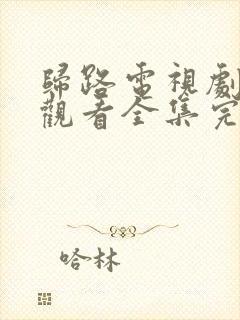 歸路電視劇
觀看全集完
哈林